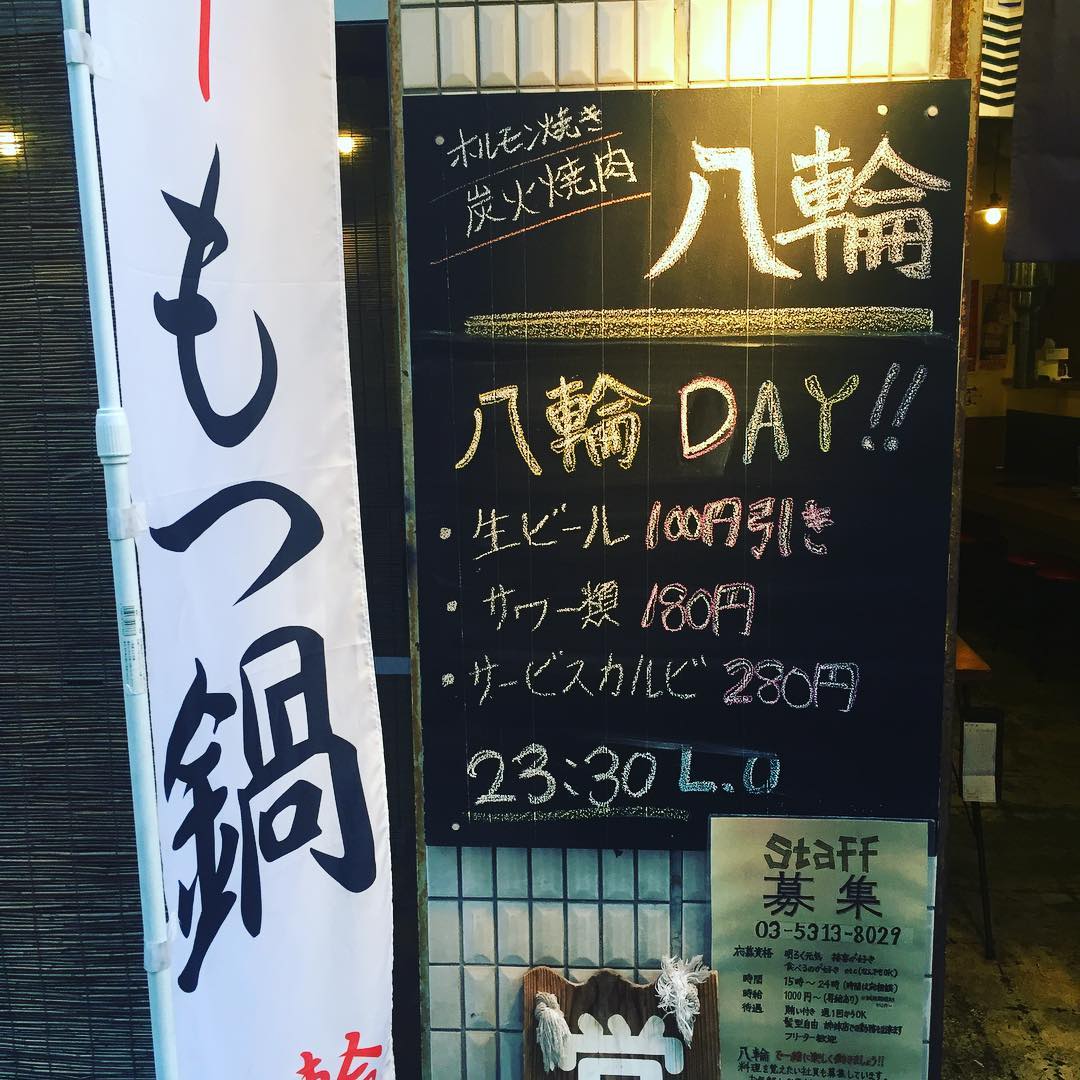 もつ鍋
ホルモン焼き
炭火焼肉
八輪
八輪 DAY!!
・生ビール 100円引き
・サワー類 180円
・サービスカルビ 280円
23:30 L.O
Staff
募集
03-5313-8029
応募資格 明るく元気 接客が好き
食べるのが好き etc(なんでもOK)
時間 15時〜24時(時間は応相談)
時給 1000円〜(昇給あり)
待遇 賄い付き 週1回からOK
髪型自由
フリーター歓迎
八輪で一緒に楽しく働きましょう!!
料理を覚えたい社員も募集しています。
営
輪